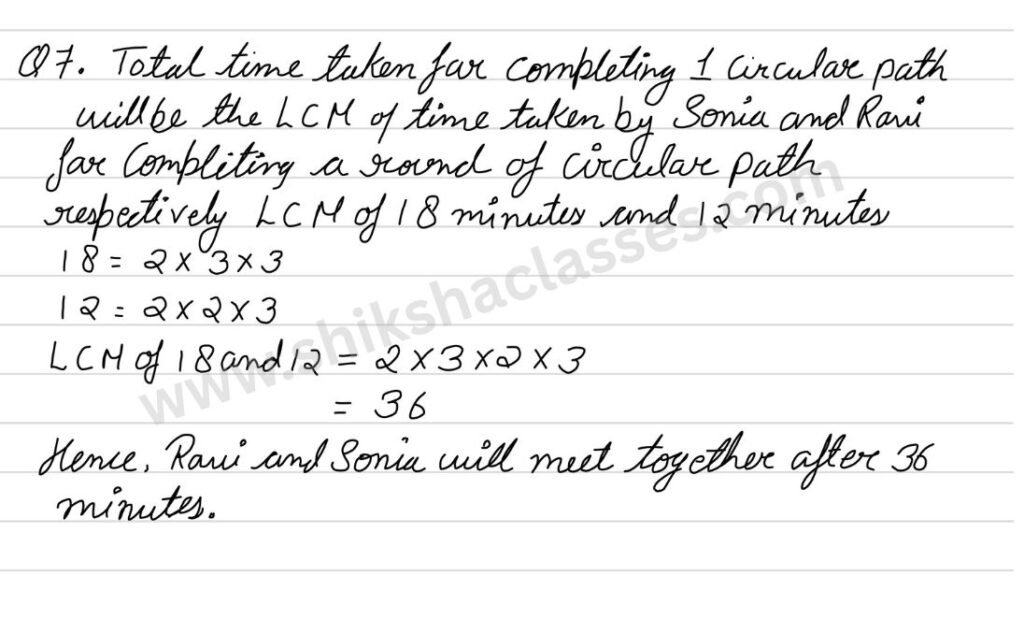 Q7. Total time taken for completing 1 circular path
will be the LCM of time taken by Sonia and Ravi
for Completing a round of circular path
respectively LCM of 18 minutes and 12 minutes
18 = 2 × 3 × 3
12 = 2 × 2 × 3
LCM of 18 and 12 = 2 × 3 × 2 × 3
= 36
Hence, Ravi and Sonia will meet together after 36
minutes.
www.shikshaclasses.com